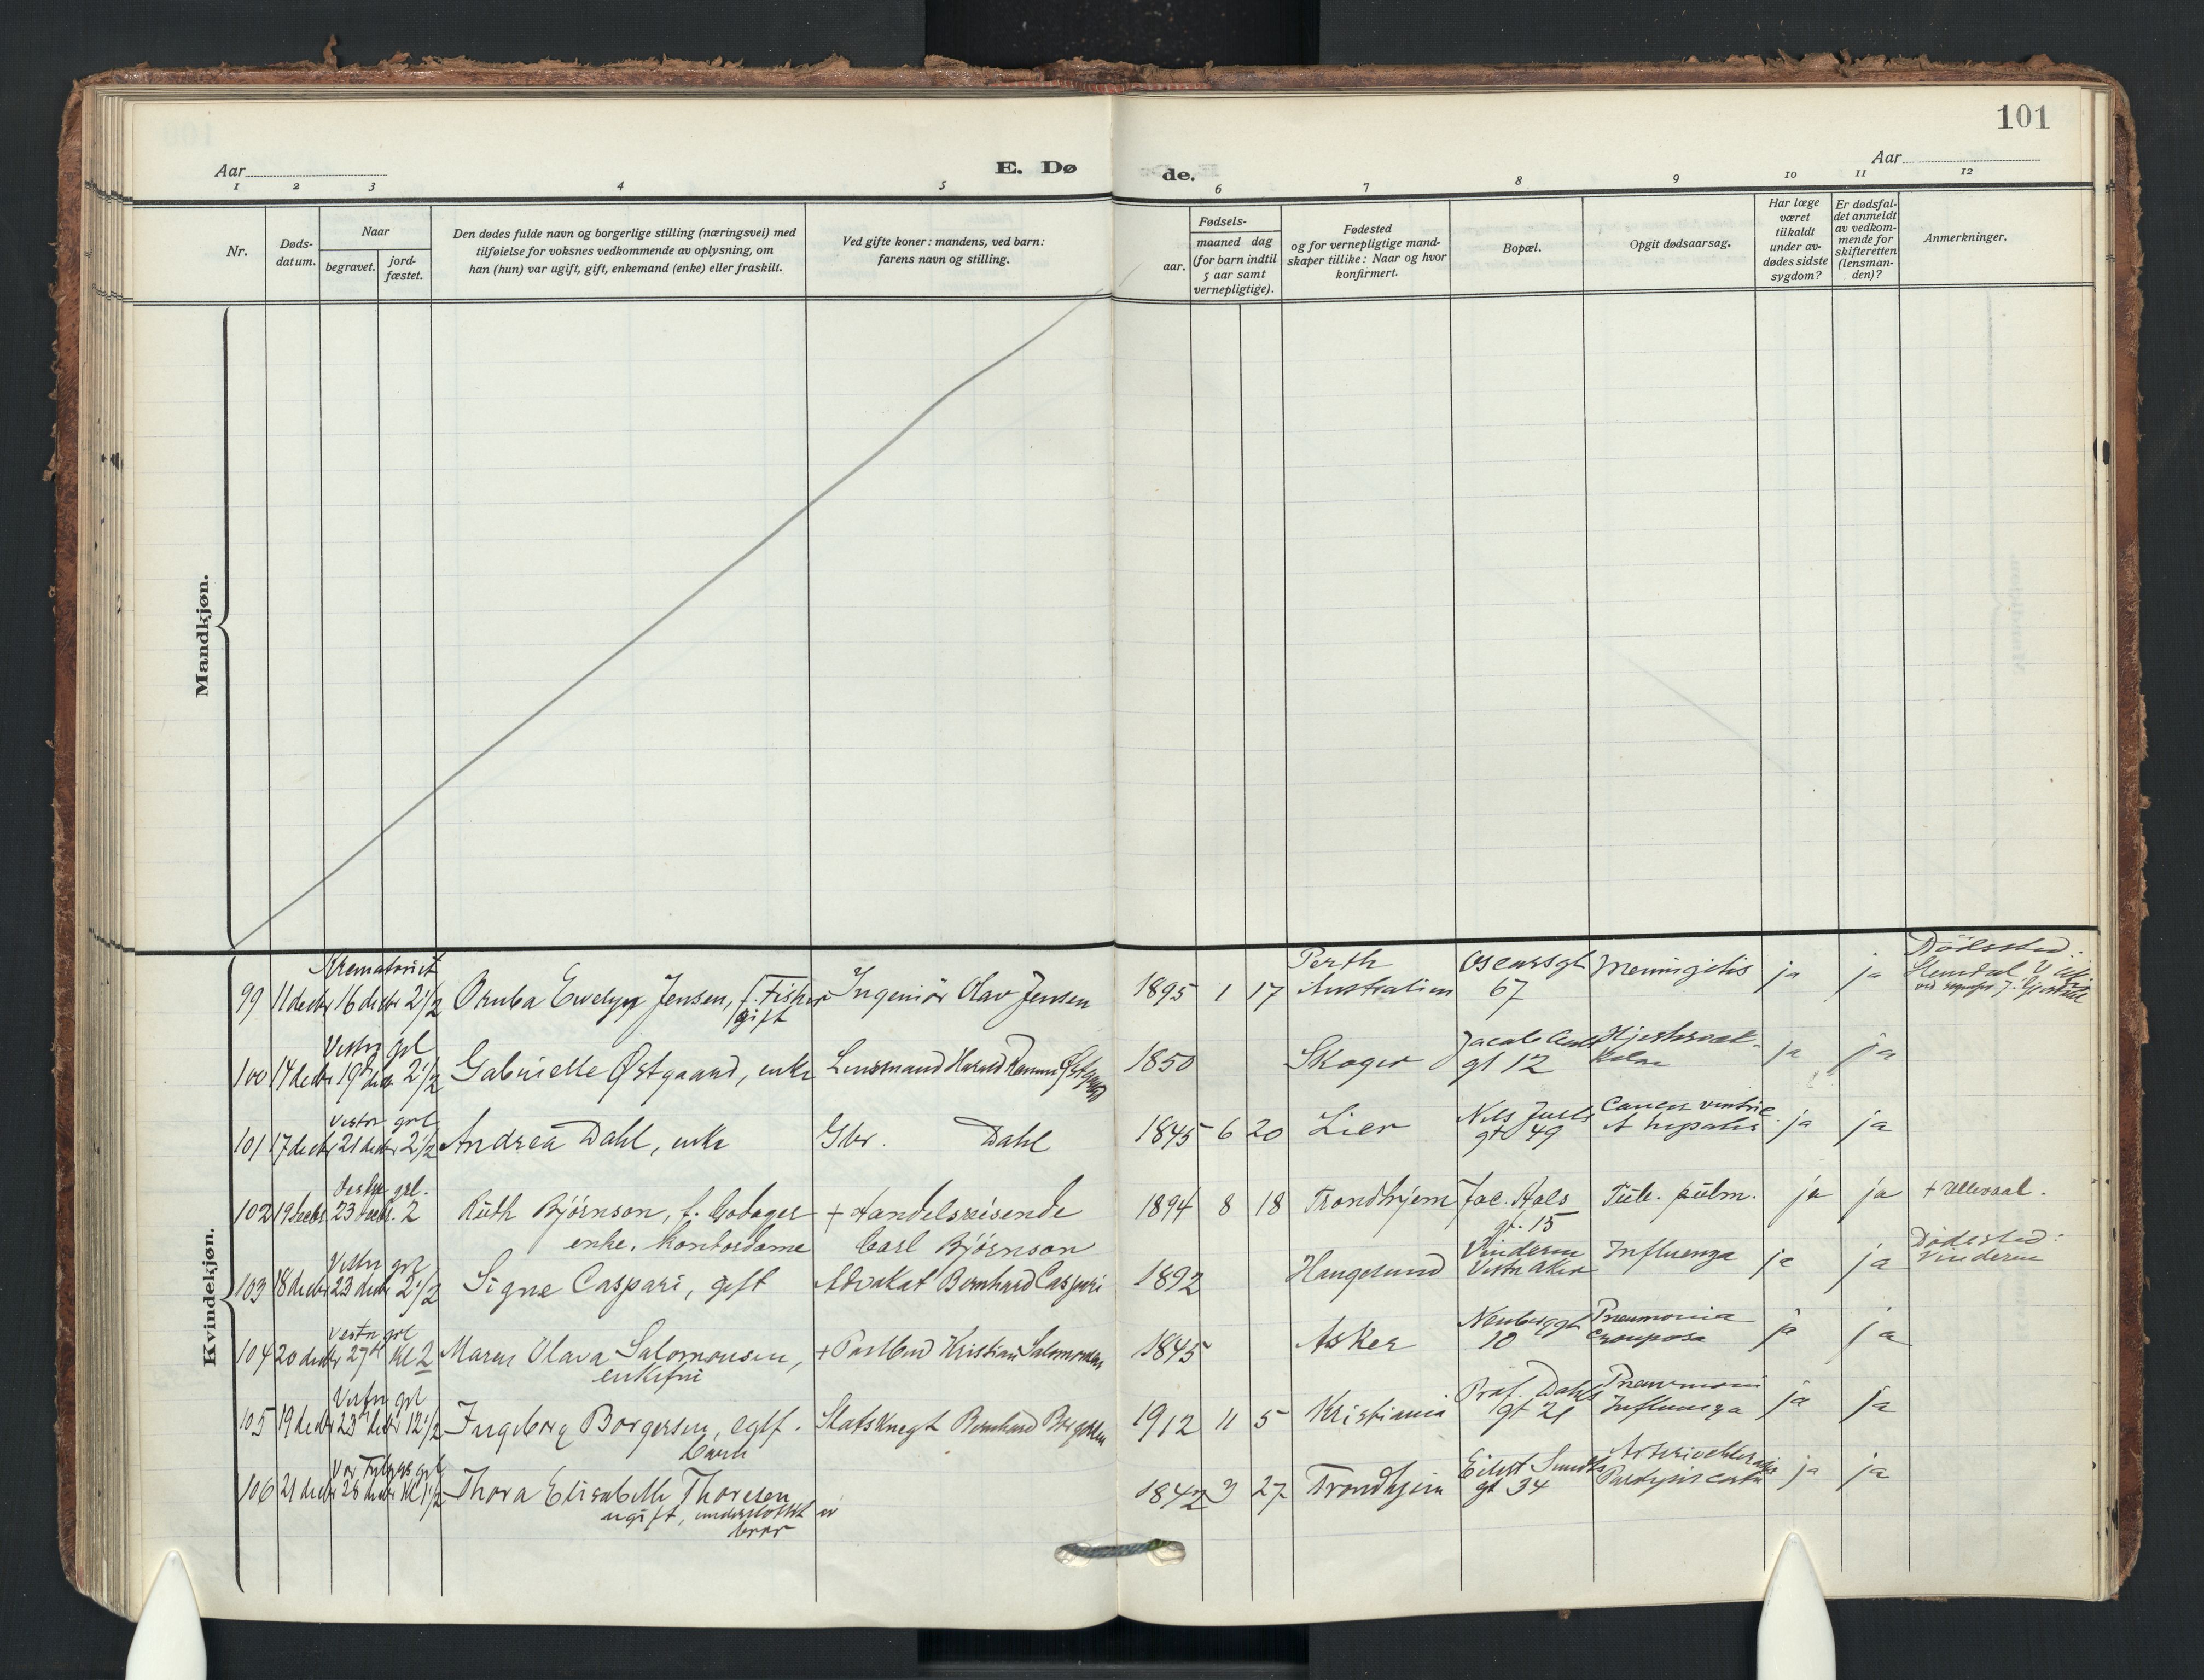 101
Aar
E. Dø
de.
Aar
1 2 3 4 5 6 7 8 9 10 11 12
Nr.
Døds-
datum.
Naar
begravet.
jord-
fæstet.
Den dødes fulde navn og borgerlige stilling (næringsvei) med
tilføielse for voksnes vedkommende av oplysning, om
han (hun) var ugift, gift, enkemand (enke) eller fraskilt.
Ved gifte koner: mandens, ved barn:
farens navn og stilling.
Fødsels-
aar.
maaned dag
(for barn indtil
5 aar samt
vernepligtige).
Fødested
og for vernepligtige mand-
skaper tillike: Naar og hvor
konfirmert.
Bopæl.
Opgit dødsaarsag.
Har læge
været
tilkaldt
under av-
dødes sidste
sygdom?
Er dødsfal-
det anmeldt
av vedkom-
mende for
skifteretten
(lensman-
den)?
Anmerkninger.
Mandkjøn.
Kvindekjøn.
Krematoriet Perth Oscarsgt Dödssted:
99 11 decbr 16 decbr 2 1/2 Ewelyn Jensen, f. Fisher Ingeniör Olav Jensen 1895 1 17 Australien 67 Meningitis ja ja
gift
Vestre grl
100 14 decbr 19 2 1/2 Gabrielle Østgaard, enke Lensmand Harald Østgaard 1850 Skoger gt 12 ja ja
Vestre grl Cancer ventric
101 17 decbr 21 decbr 2 1/2 Andrea Dahl, enke Gbr. Dahl 1845 6 20 Lier Nils Juels gt 49 et hepatis ja ja
Vestre grl.
102 19 decbr 23 decbr. 2 Ruth Bjørnson, f. enke. kontordame + Handelsreisende Carl Bjørnson 1894 8 18 Trondhjem Jac. Aals gt. 15 Tub. pulm. ja ja + Ullevaal.
Vestre grl Vinderen Dødssted:
103 18 decbr 23 decbr 2 1/2 Signe Caspari, gift Advokat Bernhard Caspari 1892 Haugesund Vestre Aker Influenza ja ja Vinderen
Vestre grl Pneumonia
104 20 decbr 27 kl 2 Maren Olava Salomonsen, enkefru + Postbud Kristian Salomonsen 1845 Asker Neuberggt 10 crouposa ja ja
Vestre grl Prof. Dahls Pneumoni
105 19 decbr 23 decbr 12 1/2 Ingeborg Borgersen, egtf. barn Bernhard Borgersen 1912 11 5 Kristiania gt 21 Influenza ja ja
Vor Frelsers grl Eilert Sundts
106 21 decbr 28 decbr kl 1 1/2 Thora Elisabeth Thoresen 1842 3 27 Trondhjem gt 34 ja ja
ugift, understøttet av